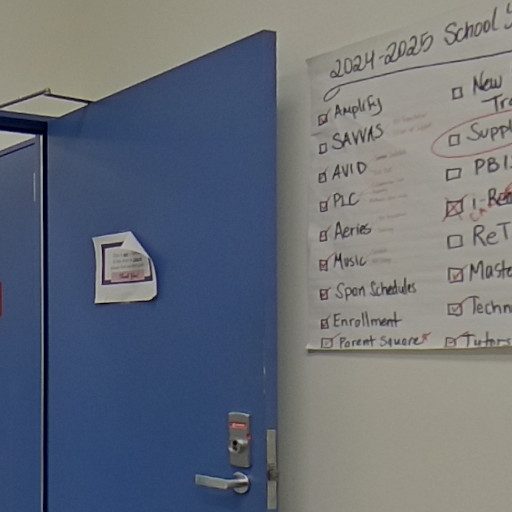 2024-2025 School
Amplify
SAVVAS
AVID
PLC
Aeries
Music
Span Schedules
Enrollment
Parent Square*
New
Tra
Suppl
PBI
i-Rea
ReT
Maste
Techn
Tutors